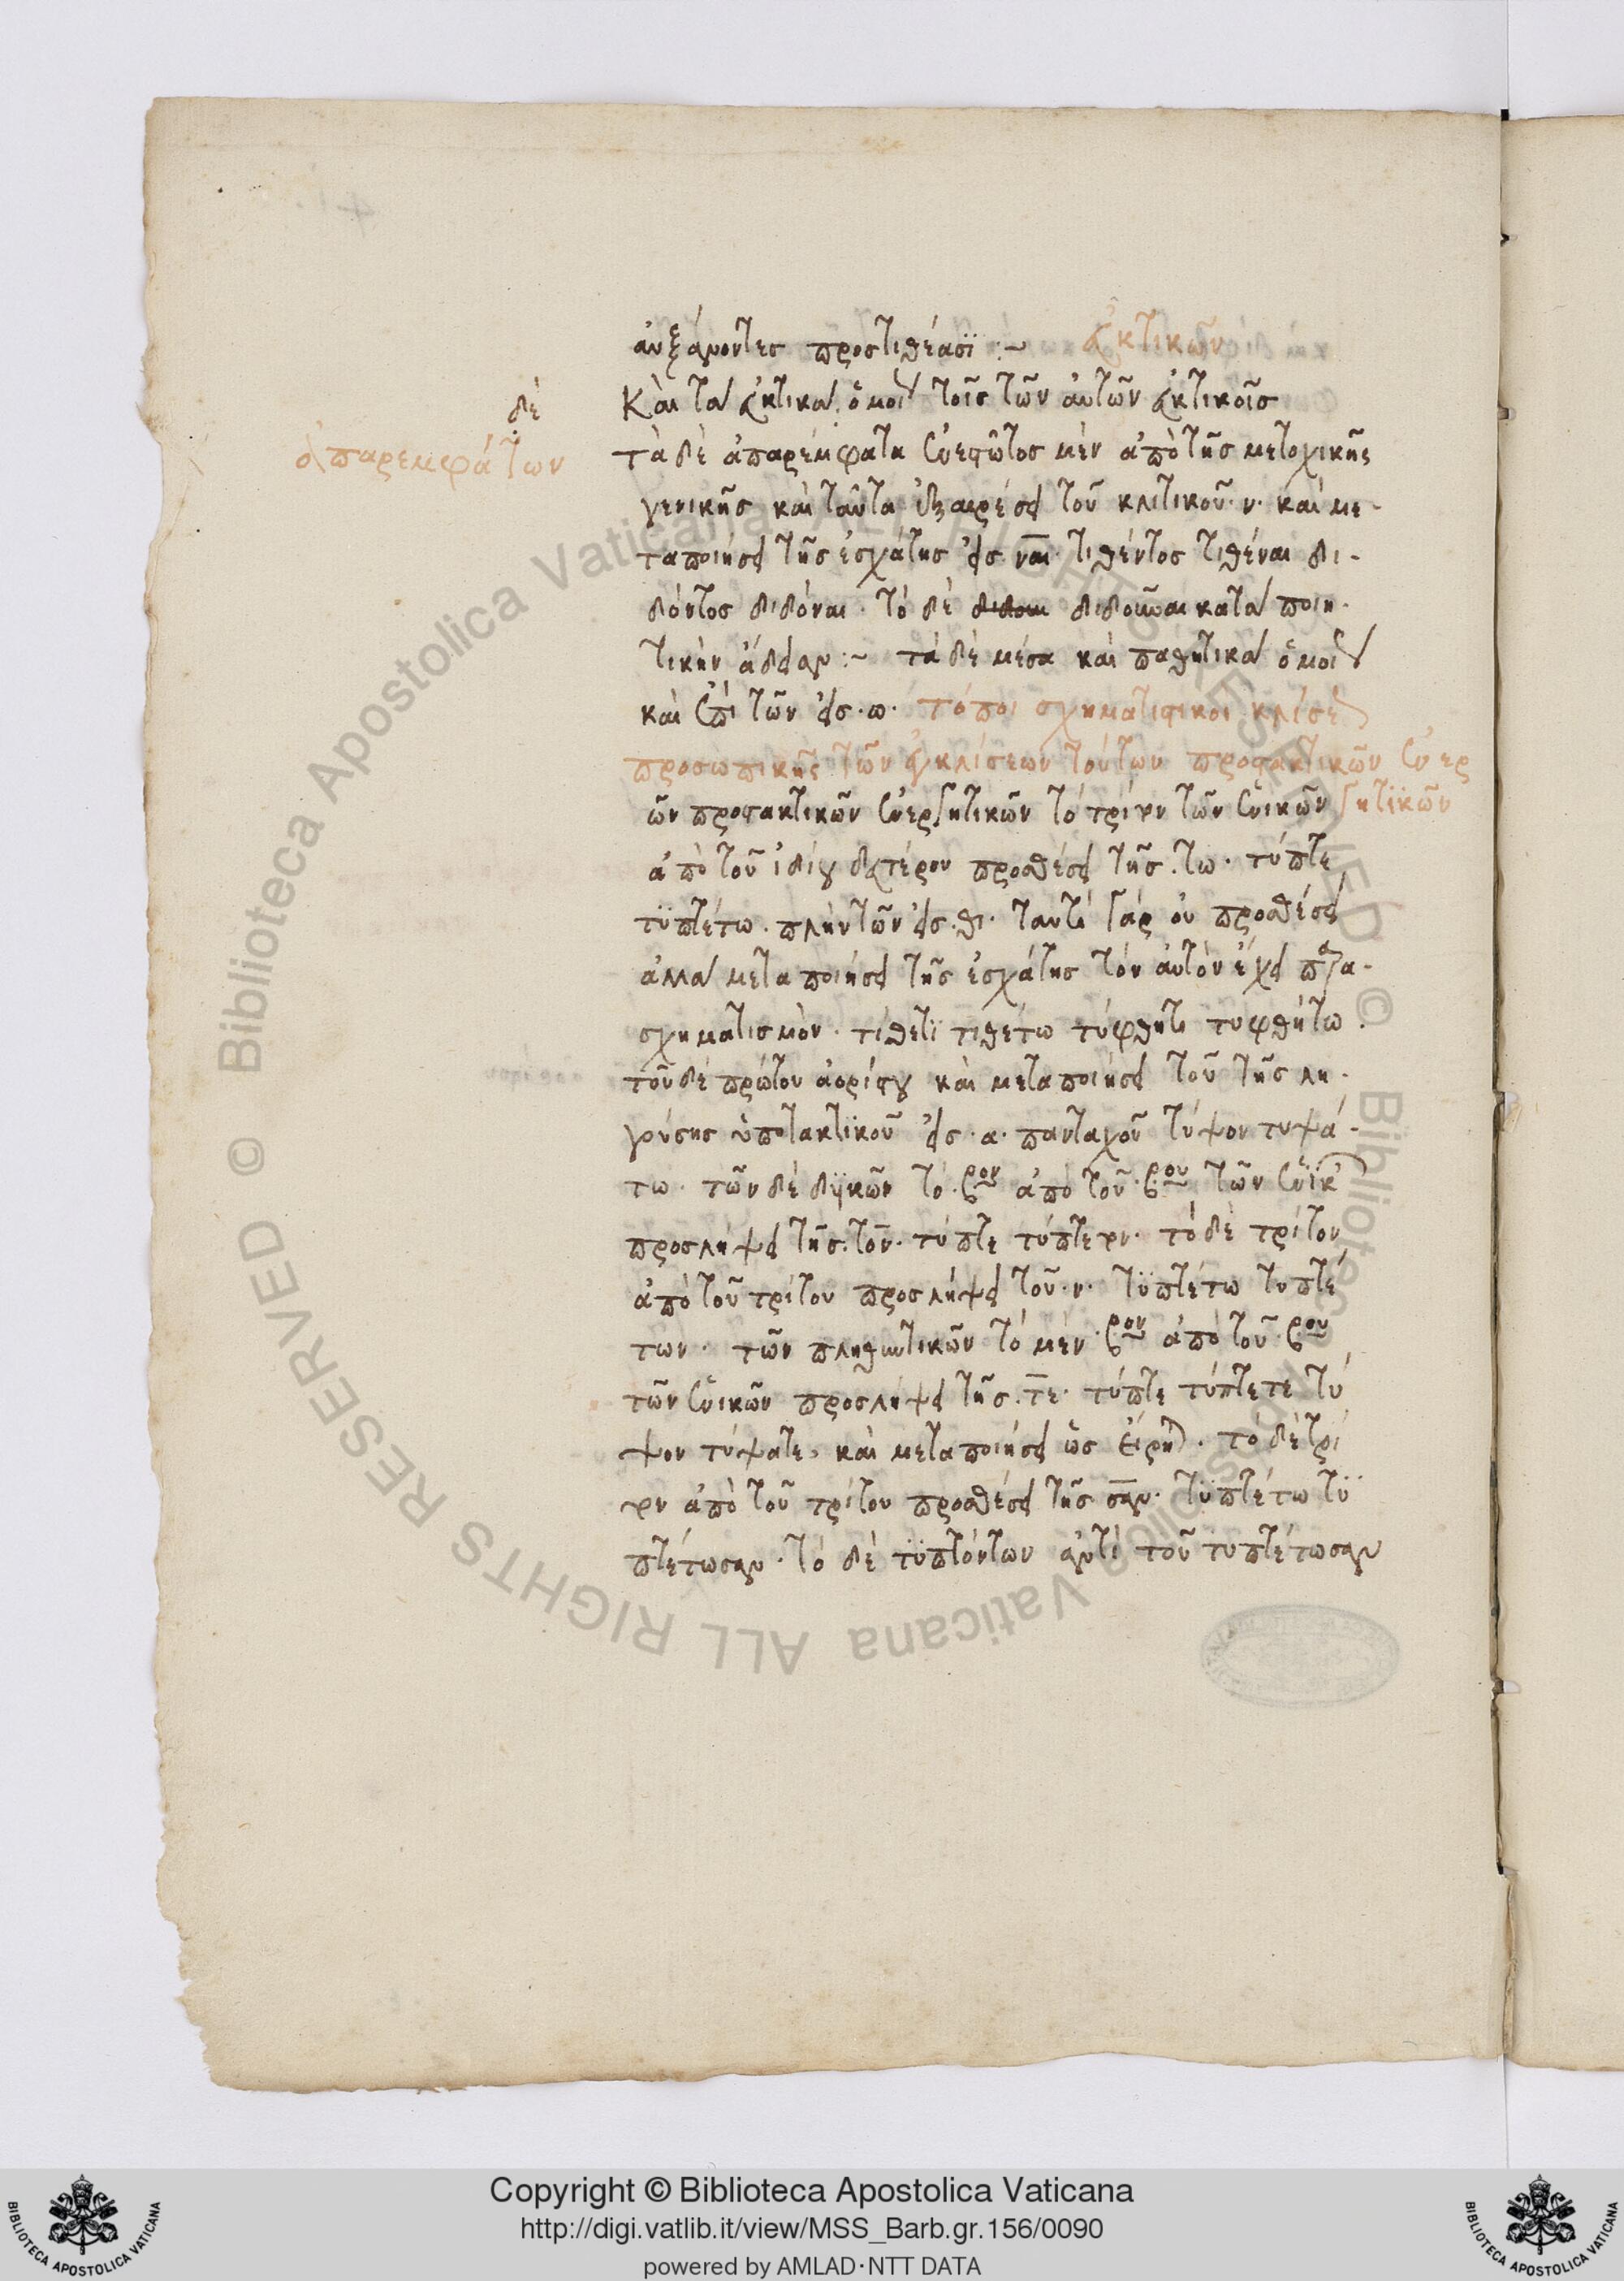 αὐξάνοντες προστιθέασϊ :~ εὐκτικῶν
Καὶ τὰ εὐκτικὰ ὁμοί τοῖς τῶν αὐτῶν εὐκτικοῖς
δὲ
ἀπαρεμφάτων
τὰ δὲ ἀπαρέμφατα ἐνεστῶτος μὲν ἀπὸ τῆς μετοχικῆς
γενικῆς καὶ ταῦτα ἐξαιρέσει τοῦ κλιτικοῦ ν· καὶ με-
ταποιήσει τῆς ἐσχάτης εἰς ναι· τιθέντος τιθέναι δι-
δόντος διδόναι · τὸ δὲ διδοῦναι κατὰ ποιη-
τικὴν ἄδειαν :~ τὰ δὲ μέσα καὶ παθητικὰ ὁμοί
καὶ ἐπὶ τῶν εἰς · ω · τόποι σχηματιστικοὶ κλίσε
προσωπικῆς τῶν ἐγκλίσεων τούτων προστακτικῶν ἐνερ
γητϊκῶν
ῶν προστακτικῶν ἐνεργητικῶν τὸ τρίτον τῶν ἑνικῶν
ἀπὸ τοῦ ἰδίου δευτέρου προσθέσει τῆς · τω · τύπτε
τϋπτέτω · πλὴν τῶν εἰς · θι · ταυτὶ γὰρ οὐ προσθέσει
ἀλλὰ μεταποιήσει τῆς ἐσχάτης τὸν αὐτὸν ἔχει παρα-
σχηματισμὸν · τίθετϊ τιθέτω τύφθητι τυφθήτω ·
τοῦ δὲ πρώτου ἀορίστου καὶ μεταποιήσει τοῦ τῆς λη-
γούσης ὑποτακτϊκοῦ εἰς · α · πανταχοῦ τύψον τυψά-
τω · τῶν δὲ δυϊκῶν τὸ · βον ἀπὸ τοῦ · βου τῶν ἑνϊκ
προσλήψει τῆς · τον · τύπτε τύπτετον · τὸ δὲ τρίτον
ἀπὸ τοῦ τρίτου προσλήψει τοῦ · ν · τϋπτέτω τυπτέ
των · τῶν πληθυντικῶν τὸ μὲν · βον ἀπὸ τοῦ · βου
τῶν ἑνικῶν προσλήψει τῆς · τε · τύπτε τύπτετε τύ
ψον τύψατε, καὶ μεταποιήσει ὡς εἴρη · τὸ δὲ τρί
τον ἀπὸ τοῦ τρίτου προσθέσει τῆς σαν · τϋπτέτω τϋ
πτέτωσαν · τὸ δὲ τϋπτόντων ἀντὶ τοῦ τυπτέτωσαν
© Biblioteca Apostolica Vaticana ALL RIGHTS RESERVED © Biblioteca Apostolica Vaticana ALL RIGHTS RESERVED
Copyright © Biblioteca Apostolica Vaticana
http://digi.vatlib.it/view/MSS_Barb.gr.156/0090
powered by AMLAD·NTT DATA
BIBLIOTECA APOSTOLICA VATICANA
BIBLIOTECA APOSTOLICA VATICANA